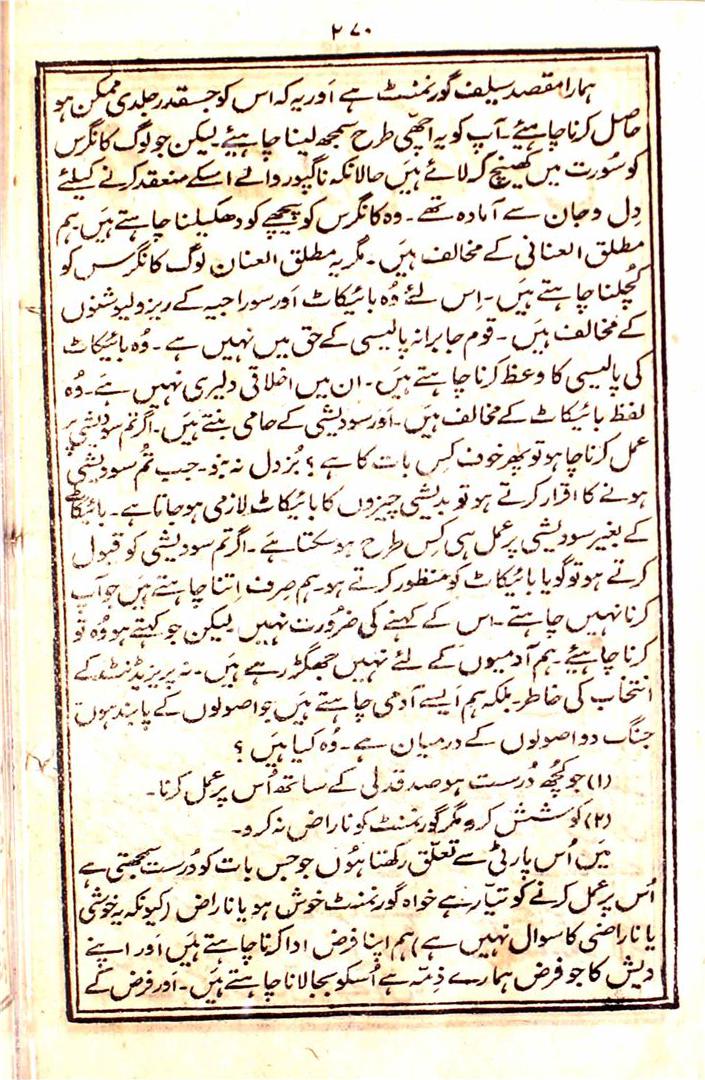 ۲۷۰
ہمارا مقصد سیلف گورنمنٹ ہے اَور یہ کہ اس کو جسقدر جلدی ممکن ہو
حاصل کرنا چاہیئے۔ آپ کو یہ اچھی طرح سمجھ لینا چاہیئے۔ لیکن جو لوگ کانگرس
کو سُورت میں کھینچ کر لائے ہیں حالانکہ ناگپور والے اسکے منعقد کرنے کیلئے
دِل و جان سے آمادہ تھے۔ وہ کانگرس کو پیچھے کو دھکیلنا چاہتے ہیں ہم
مطلق العنانی کے مخالف ہیں۔ مگر یہ مطلق العنان لوگ کانگرس کو
کُچلنا چاہتے ہیں۔ اِس لئے وُہ بائیکاٹ اَور سوراجیہ کے ریزولیوشنوں
کے مخالف ہیں۔ قوم جابرانہ پالیسی کے حق میں نہیں ہے۔ وُہ بائیکاٹ
کی پالیسی کا وعظ کرنا چاہتے ہیں۔ ان میں اخلاقی دلیری نہیں ہے۔ وُہ
لفظ بائیکاٹ کے مخالف ہیں۔ اَور سودیشی کے حامی بنتے ہیں۔ اگر تم سودیشی پر
عمل کرنا چاہو تو پھر خوف کس بات کا ہے؟ بُزدل نہ بنو۔ جب تُم سودیشی
ہونے کا اقرار کرتے ہو تو بدیشی چیزوں کا بائیکاٹ لازمی ہو جاتا ہے۔ بائیکاٹ
کے بغیر سودیشی پر عمل ہی کِس طرح ہو سکتا ہے۔ اگر تم سودیشی کو قبول
کرتے ہو تو گویا بائیکاٹ کو منظور کرتے ہو۔ ہم صِرف اِتنا چاہتے ہیں جو آپ
کرنا نہیں چاہتے۔ اس کے کہنے کی ضرُورت نہیں لیکن جو کہتے ہو وُہ تو
کرنا چاہیئے۔ ہم آدمیوں کے لئے نہیں جھگڑ رہے ہیں۔ نہ پریزیڈنٹ کے
انتخاب کی خاطر۔ بلکہ ہم اَیسے آدمی چاہتے ہیں جو اصولوں کے پابند ہوں
جنگ دو اصولوں کے درمیان ہے۔ وُہ کیا ہیں؟
(۱) جو کُچھ دُرست ہو صدقدلی کے ساتھ اُس پر عمل کرنا۔
(۲) کوشش کرو مگر گورنمنٹ کو ناراض نہ کرو۔
میں اُس پارٹی سے تعلّق رکھتا ہُوں جو جس بات کو دُرست سمجھتی ہے
اُس پر عمل کرنے کو تیّار ہے خواہ گورنمنٹ خوش ہو یا ناراض (کیونکہ یہ خوشی
یا ناراضی کا سوال نہیں ہے) ہم اپنا فرض ادا کرنا چاہتے ہیں اَور اپنے
دیش کا جو فرض ہمارے ذِمّہ ہے اُسکو بجا لانا چاہتے ہیں۔ اَور فرض کے